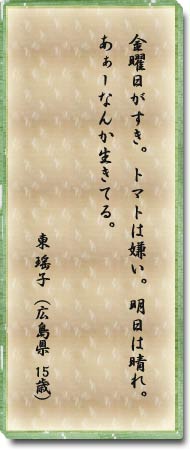 金曜日がすき。トマトは嫌い。明日は晴れ。
あぁーなんか生きてる。
東瑶子（広島県 15歳）